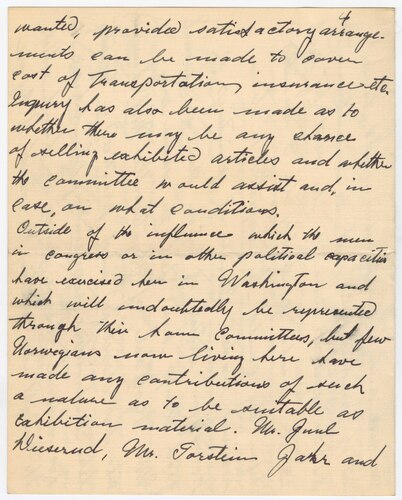 4
wanted, provided satisfactory arrange-
ments can be made to cover
cost of transportation, insurance etc.
Inquiry has also been made as to
whether there may be any chance
of selling exhibited articles and whether
the committee would assist and, in
case, on what conditions.
Outside of the influence which the men
in congress or in other political capacities
have exercised here in Washington and
which will undoubtedly be represented
through their home committees, but few
Norwegians now living here have
made any contributions of such
a nature as to be suitable as
exhibition material. Mr. Juul
Dieserud, Mr. Torstein Jahr and